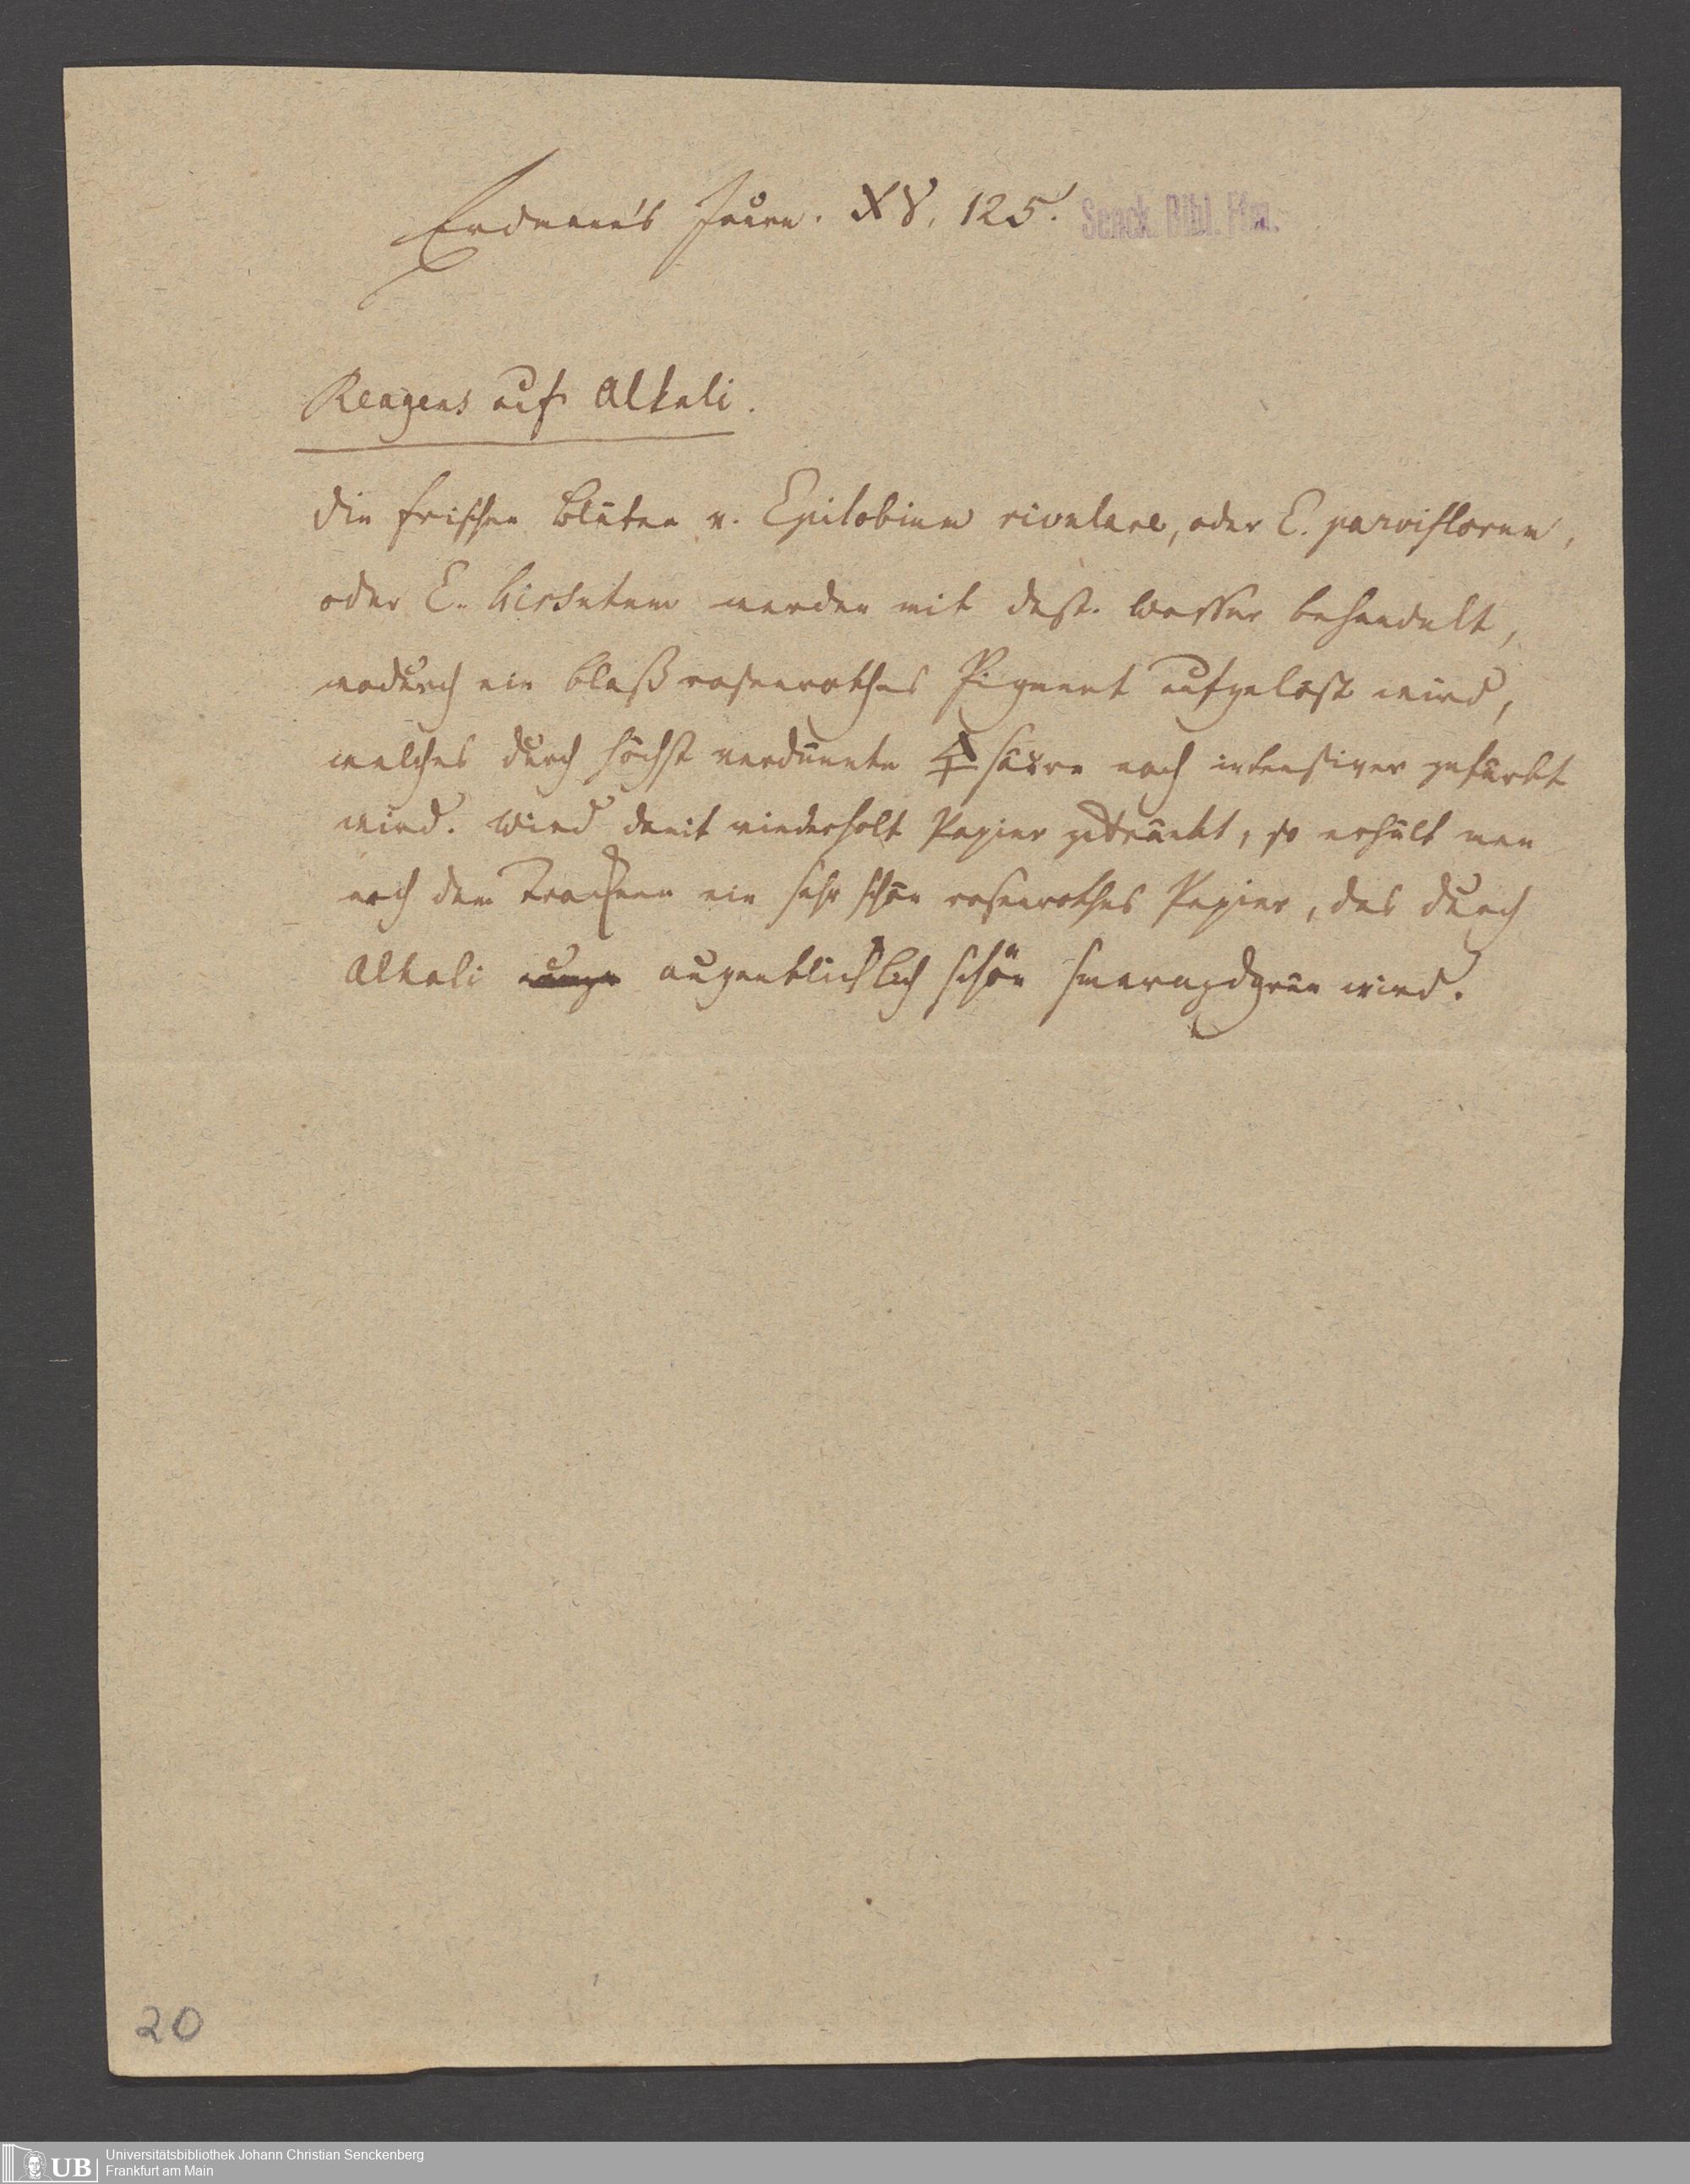 Erdmann's Journ. XV, 125.
Senck. Bibl. Ffm.
Reagens auf Alkali.
Die frischen Blüten v. Epilobium rivulare, oder E. parviflorum,
oder E. hirsutum werden mit dest. Wasser behandelt,
wodurch ein blaß rosenrothes Pigment aufgelöst wird,
welches durch höchst verdünnte 🜍säure noch intensiver gefärbt
wird. Wird damit wiederholt Papier getränkt, so erhält man
nach dem Trocknen ein sehr schön rosenrothes Papier, das durch
Alkali augenblicklich schön smaragdgrün wird.
20
UB Universitätsbibliothek Johann Christian Senckenberg
Frankfurt am Main